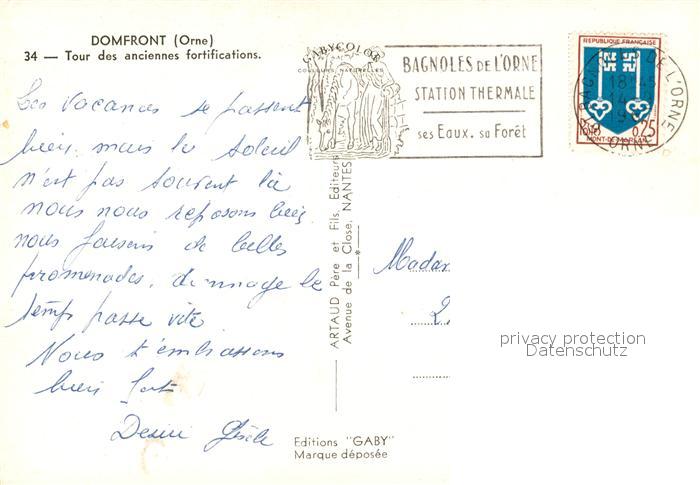 DOMFRONT (Orne)
34 — Tour des anciennes fortifications.
GABYCOLOR
BAGNOLES DE L'ORNE
STATION THERMALE
ses Eaux. sa Forêt
REPUBLIQUE FRANÇAISE
DE L'ORNE
ORNE
0,25
MONT-DE-MARSAN
Les vacances se passent
bien, mais le soleil
n'est pas souvent là
nous nous reposons bien,
nous faisons de belles
promenades, dommage le
temps passe vite
Nous t'embrassons
bien fort
Gisèle
ARTAUD Père et Fils, Editeurs
Avenue de la Close, NANTES
Madam
2.
privacy protection
Datenschutz
Editions "GABY"
Marque déposée